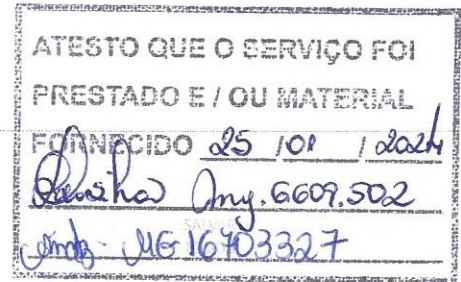 ATESTO QUE O SERVIÇO FOI
PRESTADO E / OU MATERIAL
FORNECIDO 25 /01 / 2024
6609.502
MG 16703327